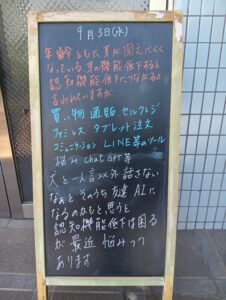 9月3日(水)
年齢とともに耳が聞こえにくく
なっている 耳の機能低下すると
認知機能低下につながると
言われていますが、
買い物 通販 セルフレジ
ファミレス タブレット注文
コミュニケーション LINE等のツール
悩み chat GPT等
犬と一人言以外話さない
なぁと そのうち友達 AIに
なるのかもと思うと
認知機能低下は困る
が 最近 悩みつつ
あります